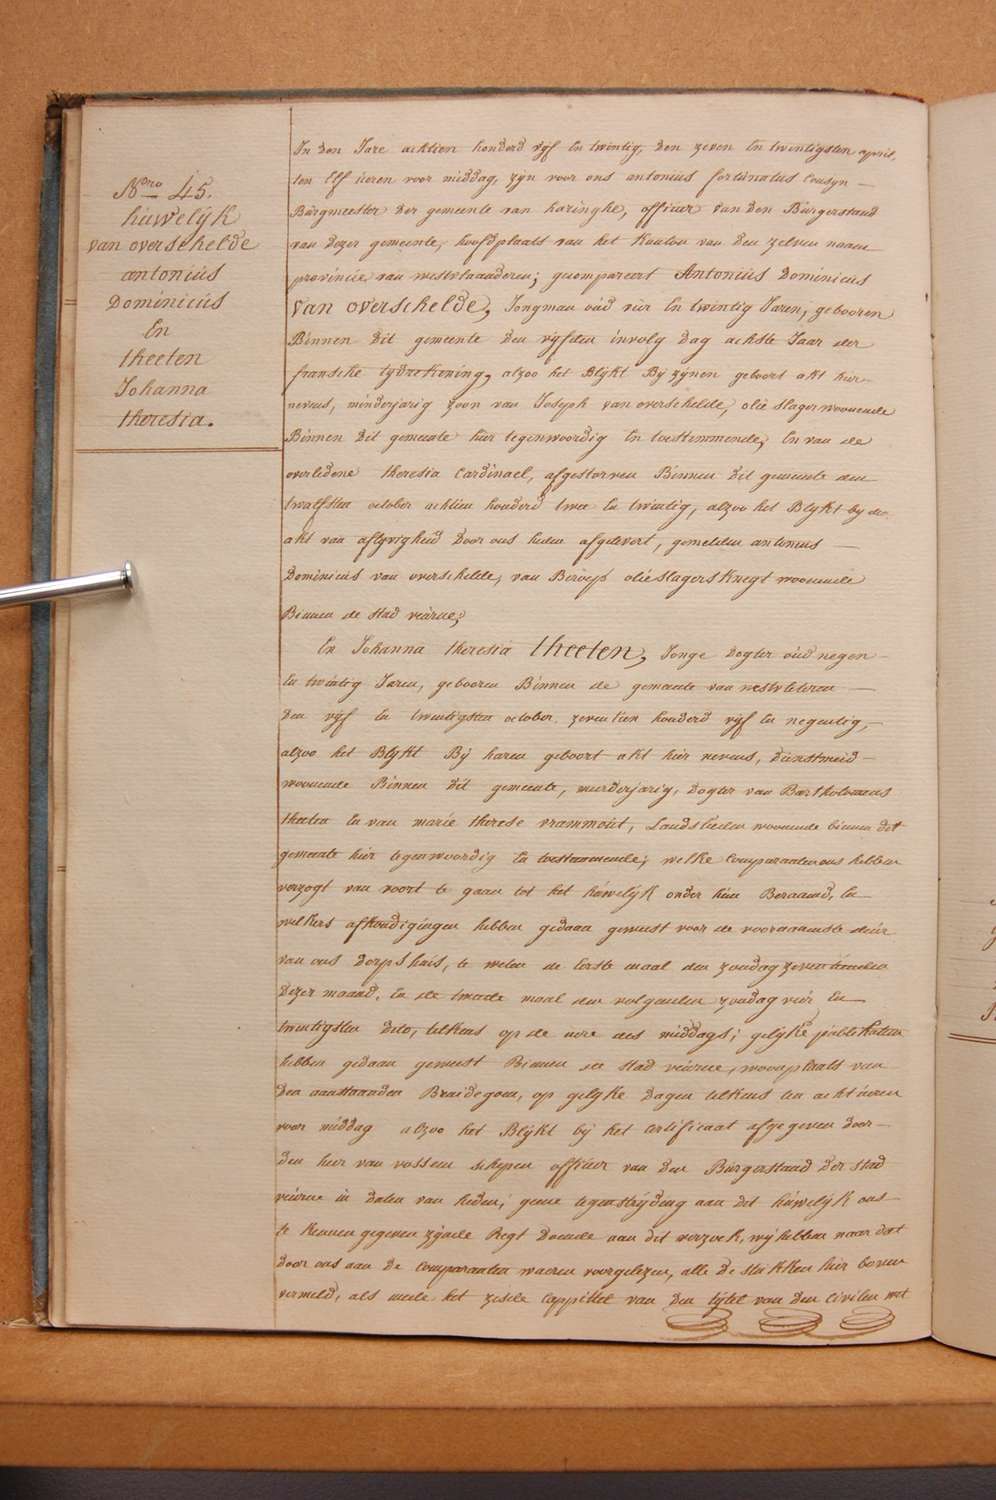 Nro 45.
huwelijk
van overschelde
antonius
Dominicus
En
theeten
Johanna
theresia.
In den Jare achtien honderd vijf En twintig, den zeven En twintigsten april,
ten Elf uren voor middag, zijn voor ons antonius fortunatus Cousyn
Burgmeester Der gemeente van haringhe, officier van den Burgerstand
van dezer gemeente, hoofdplaats van het Kanton van den zelven naam
provincie van westvlaanderen; gecompareert Antonius Dominicus
van overschelde, Jongman oud vier En twintig Jaren, gebooren
Binnen Dit gemeente den vijfden involg Dag achste Jaar der
fransche tydrekening, alzoo het Blijkt Bij zijnen geboort akt hier
nevens, minderjarig zoon van Joseph van overschelde, olie slager woonende
Binnen Dit gemeente hier tegenwoordig En toestemmende, En van de
overledene theresia Cardinael, afgestorven Binnen Dit gemeente den
twalfsten october achtien honderd twee En twintig, alzoo het Blijkt by den
akt van aflyvigheid Door ons heden afgelevert, gemelden antonius
Dominicus van overschelde, van Beroep olieslagersknegt woonende
Binnen de stad veurne;
En Johanna theresia theeten, Jonge Dogter oud negen
En twintig Jaren, gebooren Binnen de gemeente van westvleteren
Den vijf En twintigsten october zeventien honderd vijf En negentig,
alzoo het Blijkt Bij haren geboort akt hier nevens, Dienstmeid
woonende Binnen Dit gemeente, meerderjarig, Dogter van Bartholomeus
theeten En van marie therese vrammout, Landslieden woonende binnen dit
gemeente hier tegenwoordig En toestaamende; welke Comparanten ons hebben
verzogt van voort te gaan tot het huwelijk onder hun Beraamd, En
welkers afkondigingen hebben gedaan geweest voor de voornaamste deur
van ons Dorpshuis, te weten de Eerste maal den zondag zeventienden
Dezer maand, En de twede maal den volgenden zondag vier En
twintigsten dito, telkens op de uere des middags; gelijke publikatien
hebben gedaan geweest Binnen de stad veurne, woonplaats van
Den aanstaanden Bruidegom, op gelijke Dagen telkens ten acht uren
voor middag alzoo het Blijkt bij het Certificaat afgegeven door
Den heer van vossem schepen officier van den Burgerstand Der stad
veurne in daten van heden; geene tegenstrijding aan dit huwelijk ons
te kennen gegeven zijnde Regt Doende aan dit verzoek, wij hebben naar dat
door ons aan De Comparanten waeren voorgelezen, alle De stukken hier boven
vermeld, als mede het zesde Cappittel van Den tijtel van Den Civilen wet